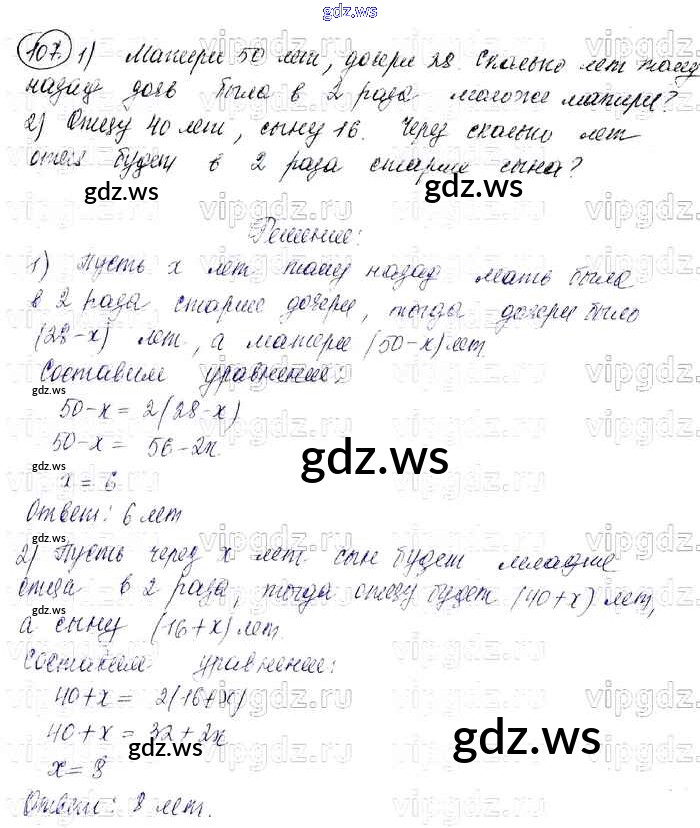 gdz.ws
107. 1) Матери 50 лет, дочери 28. Сколько лет тому
назад дочь была в 2 раза моложе матери?
2) Отцу 40 лет, сыну 16. Через сколько лет
отец будет в 2 раза старше сына?
gdz.ws gdz.ws
Решение:
1) Пусть x лет тому назад мать была
в 2 раза старше дочери, тогда дочери было
(28-x) лет, а матери (50-x) лет.
Составим уравнение:
gdz.ws
50-x = 2(28-x)
50-x = 56-2x
gdz.ws
gdz.ws
x = 6
Ответ: 6 лет
gdz.ws
2) Пусть через x лет сын будет младше
отца в 2 раза, тогда отцу будет (40+x) лет,
gdz.ws
а сыну (16+x) лет.
Составим уравнение:
40+x = 2(16+x)
gdz.ws
40+x = 32+2x
gdz.ws
x = 8
Ответ: 8 лет.